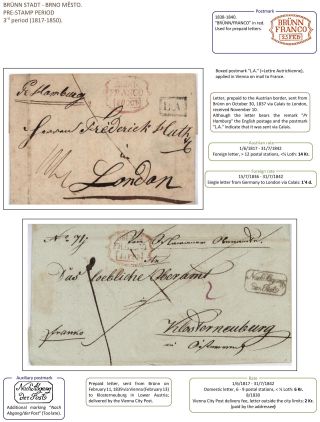 BRÜNN STADT - BRNO MĚSTO.
PRE-STAMP PERIOD
3rd period (1817-1850).
Postmark
1838-1840.
"BRÜNN/FRANCO" in red.
Used for prepaid letters.
BRÜNN
FRANCO
Boxed postmark "L.A." (=Lettre Autrichienne),
applied in Vienna on mail to France.
Letter, prepaid to the Austrian border, sent from
Brünn on October 30, 1837 via Calais to London,
received November 10.
Although the letter bears the remark "Pr
Hamburg" the English postage and the postmark
"L.A." indicate that it was sent via Calais.
Austrian rate
1/6/1817 - 31/7/1842
Foreign letter, > 12 postal stations, <½ Loth: 14 Kr.
Foreign rate
31/7/1842
Single letter from Germany to London via Calais: 1'8 d.
Pr Hamburg
FRANCO
L.A.
Herren Frederick Huth
London
An
Das loebliche Oberamt
Klosterneuburg
franko
Auxiliary postmark
Nach Abgang
der Post
Additional marking "Nach
Abgang/der Post" (Too late).
Prepaid letter, sent from Brünn on
February 11, 1839 via Vienna (February 13)
to Klosterneuburg in Lower Austria;
delivered by the Vienna City Post.
Rate
1/6/1817 - 31/7/1842
Domestic letter, 6 - 9 postal stations, < ½ Loth: 6 Kr.
8/1839
Vienna City Post delivery fee, letter outside the city limits: 2 Kr.
(paid by the addressee)